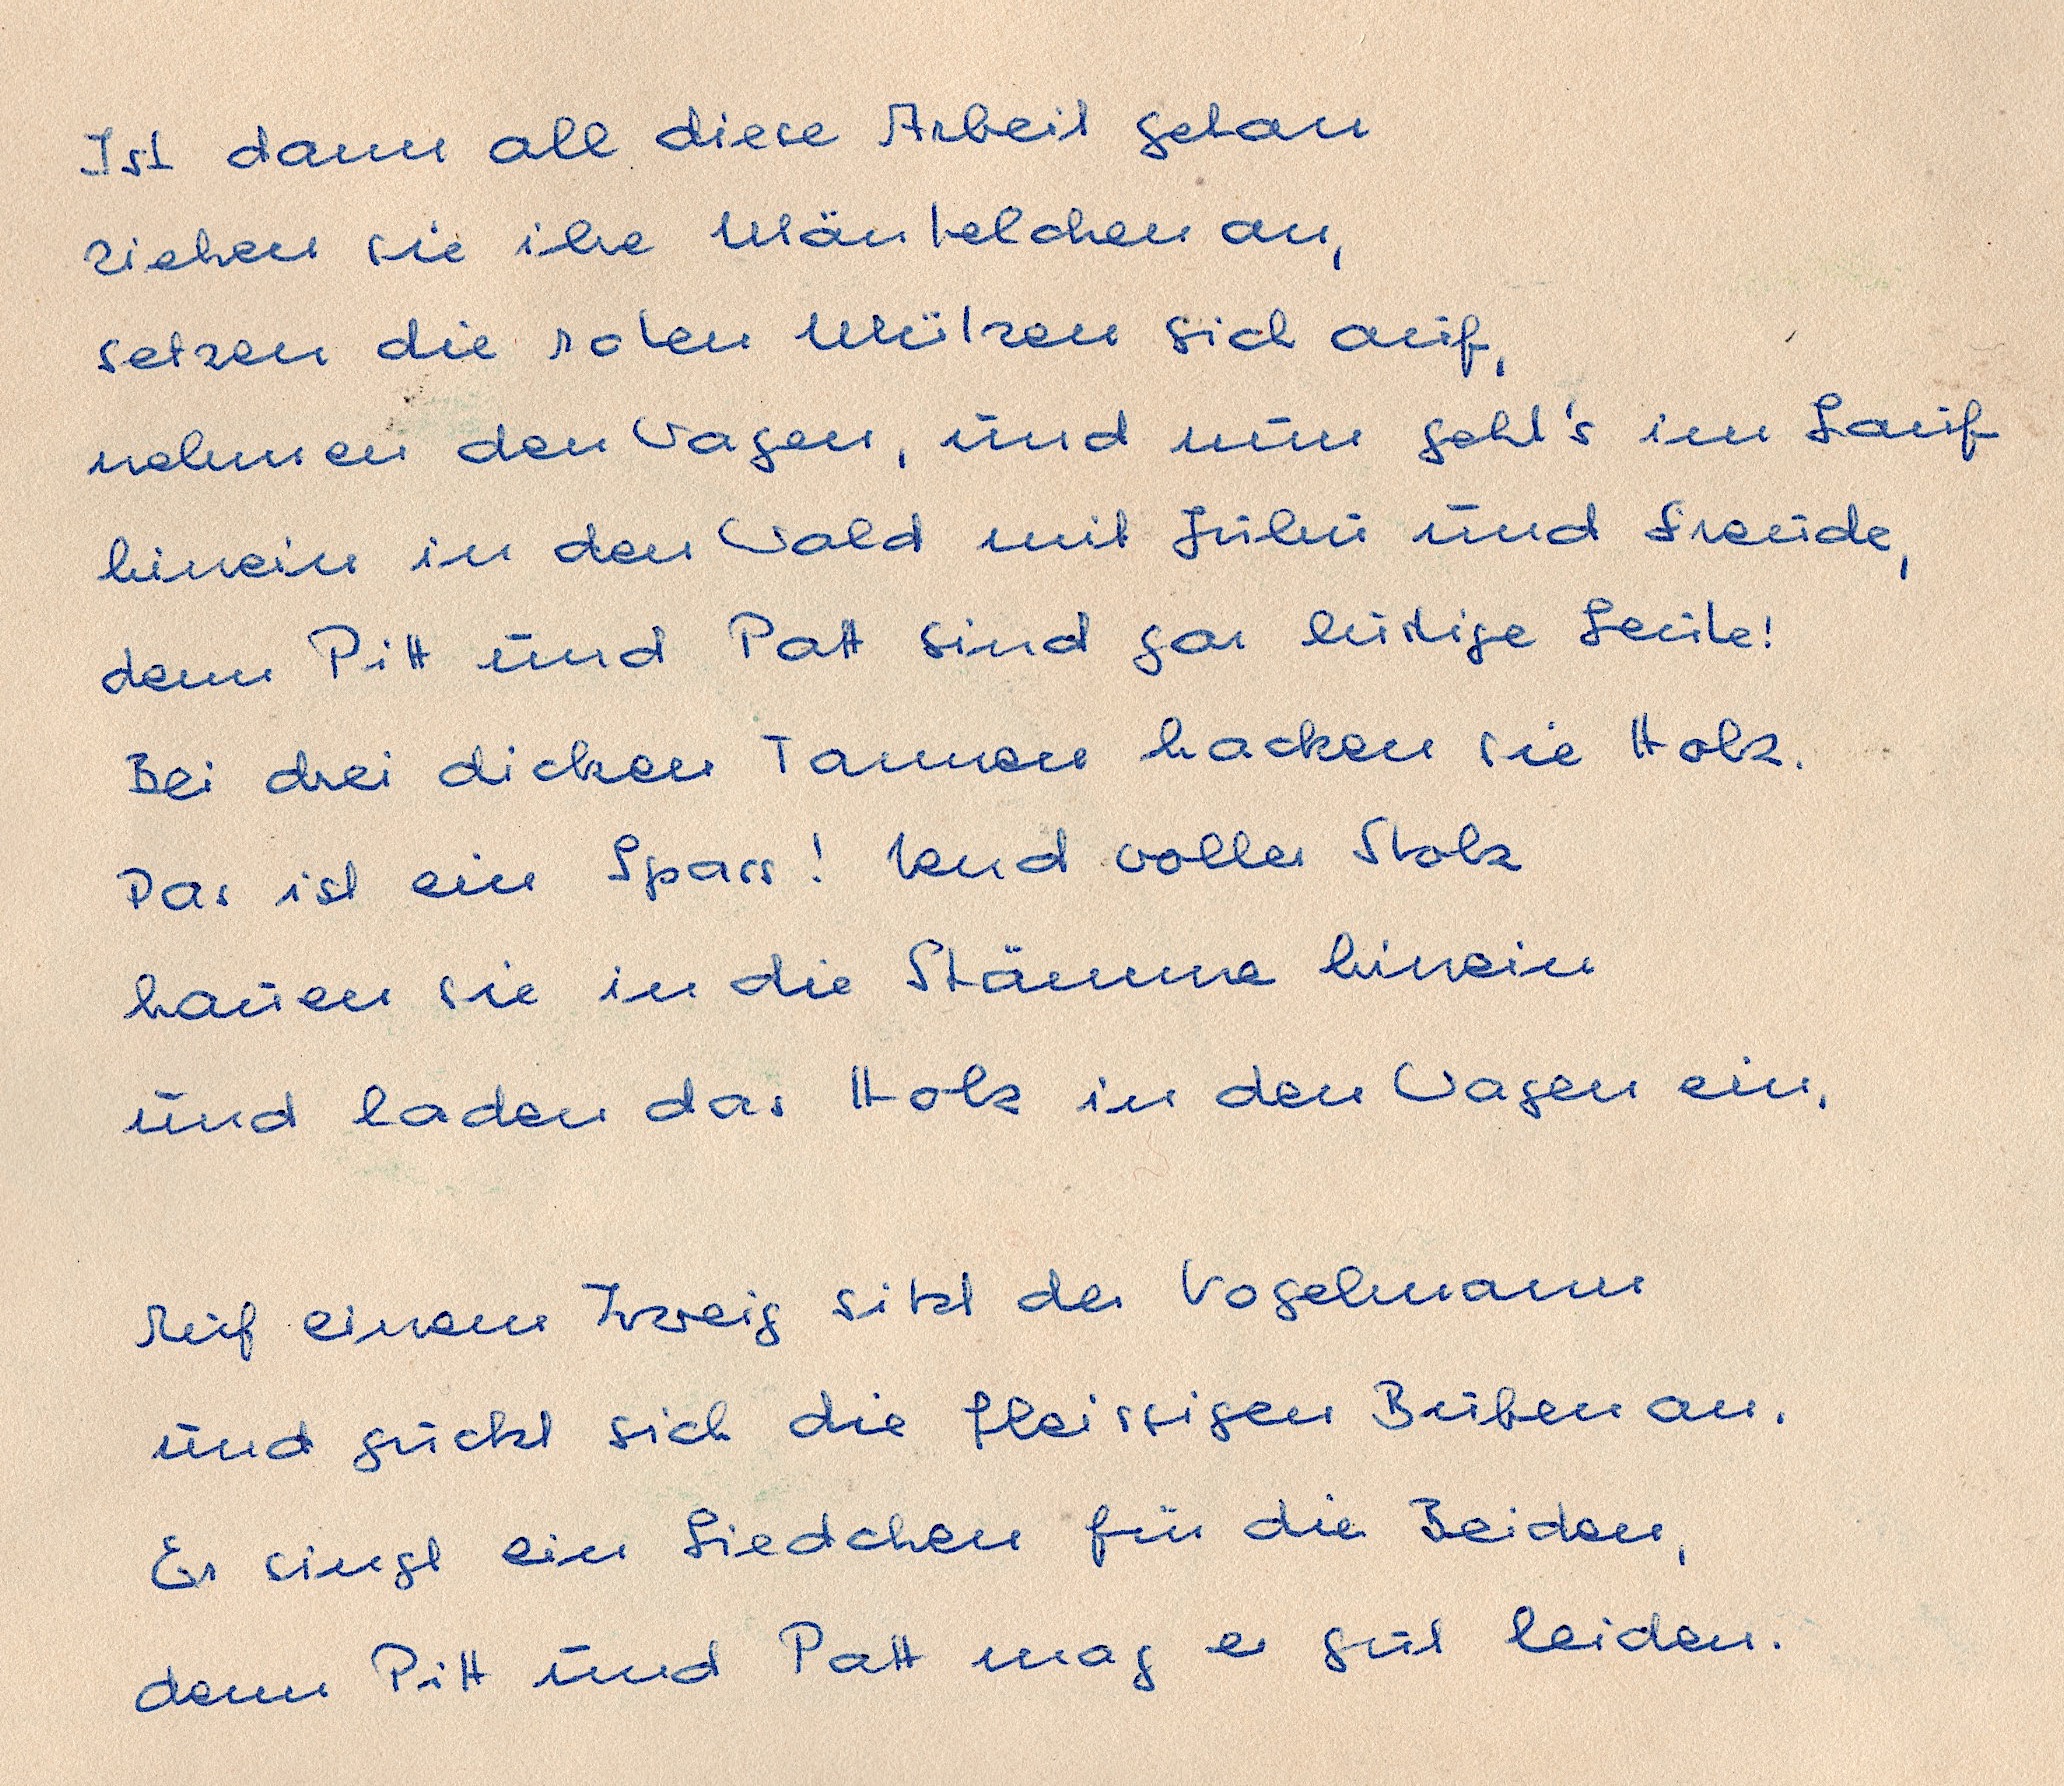 Ist dann all diese Arbeit getan
ziehen sie ihre Mäntelchen an,
setzen die roten Mützen sich auf,
nehmen den Wagen, und nun geht's im Lauf
hinein in den Wald mit Juhu und Freude,
denn Pitt und Patt sind gar lustige Leute!
Bei drei dicken Tannen hacken sie Holz.
Das ist ein Spass! Und voller Stolz
hauen sie in die Stämme hinein
und laden das Holz in den Wagen ein.
Auf einem Zweig sitzt der Vogelmann
und guckt sich die fleissigen Buben an.
Er singt ein Liedchen für die Beiden,
denn Pitt und Patt mag er gut leiden.